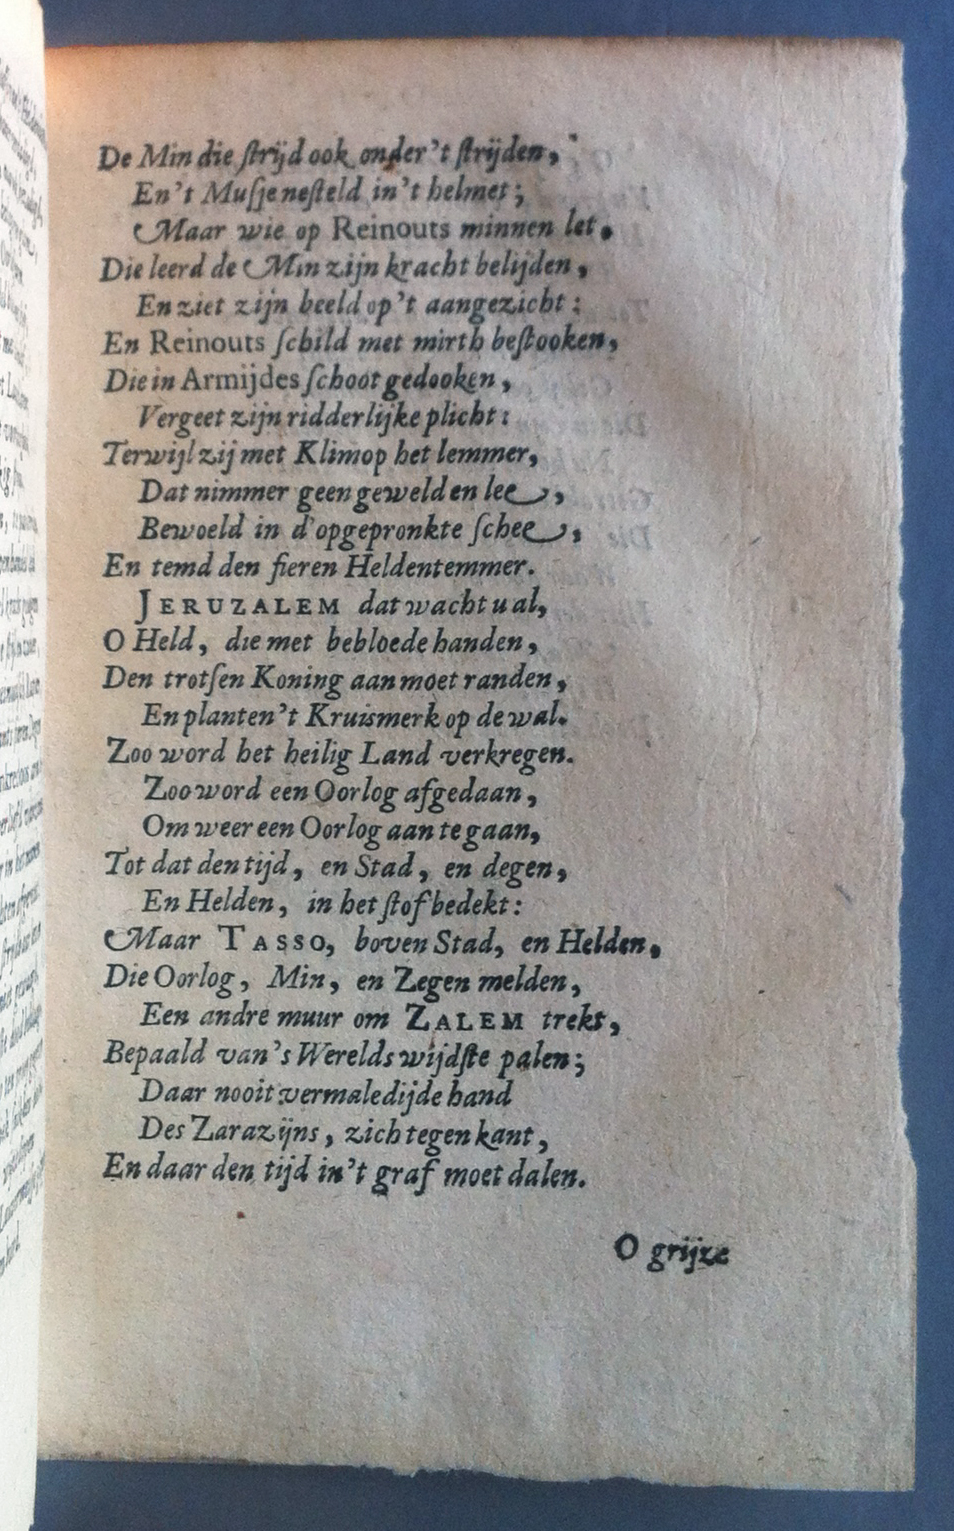 De Min die ſtrijd ook onder't ſtrijden,
En't Muſje neſteld in't helmet;
Maar wie op Reinouts minnen let.
Die leerd de Min zijn kracht belijden,
En ziet zijn beeld op't aangezicht:
En Reinouts ſchild met mirth beſtooken,
Die in Armijdes ſchoot gedooken,
Vergeet zijn ridderlijke plicht:
Terwijl zij met Klimop het lemmer,
Dat nimmer geen geweld en lee,
Bewoeld in d'opgepronkte ſchee,
En temd den fieren Heldentemmer.
JERUZALEM dat wacht u al,
O Held, die met bebloede handen,
Den trotſen Koning aan moet randen,
En planten't Kruismerk op de wal.
Zoo word het heilig Land verkregen.
Zoo word een Oorlog afgedaan,
Om weer een Oorlog aan te gaan,
Tot dat den tijd, en Stad, en degen,
En Helden, in het ſtof bedekt:
Maar TASSO, boven Stad, en Helden,
Die Oorlog, Min, en Zegen melden,
Een andre muur om ZALEM trekt,
Bepaald van's Werelds wijdſte palen;
Daar nooit vermaledijde hand
Des Zarazijns, zich tegen kant,
En daar den tijd in't graf moet dalen.
O grijze